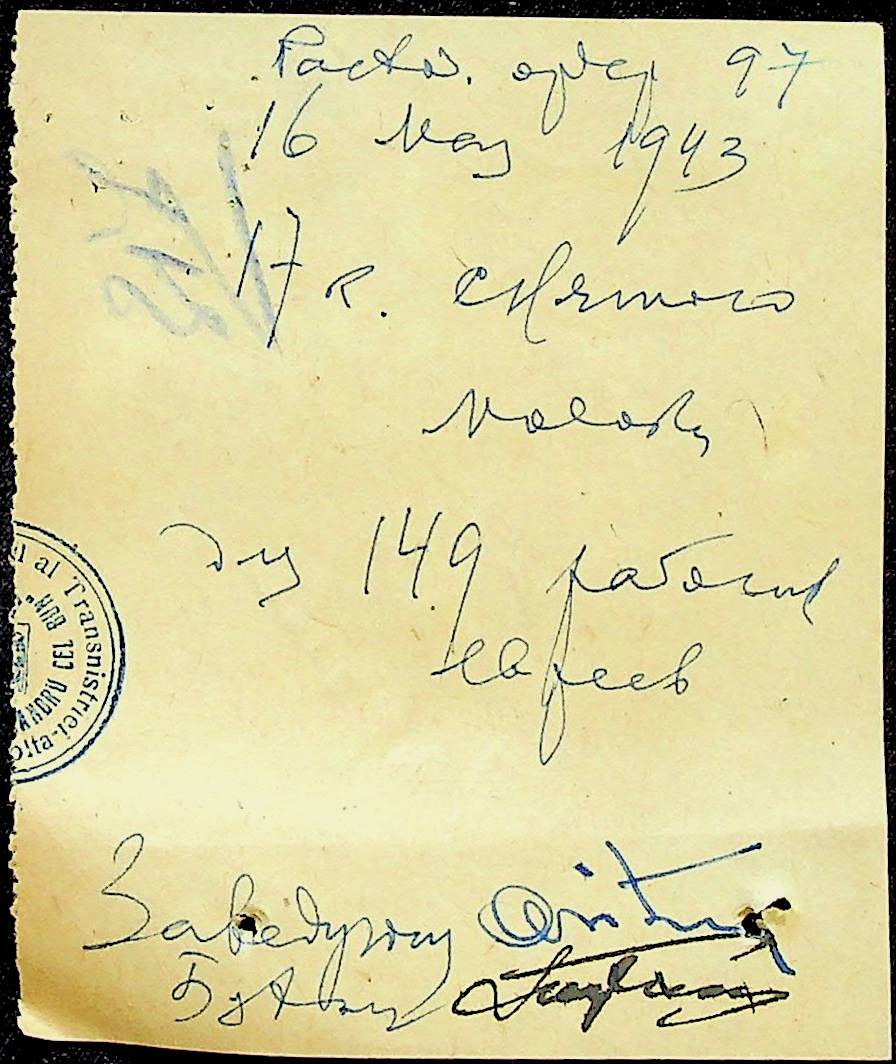 Расход. ордер 97
16 мая 1943
17 к. снятого
молока
для 149 рабочих
евреев
Заведующий
al Transnistriei
CEL BUN